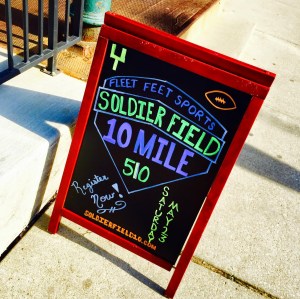 FLEET FEET SPORTS
SOLDIER FIELD
10 MILE
510
Register
Now!
SATURDAY
MAY 23
SOLDIERFIELD10.COM